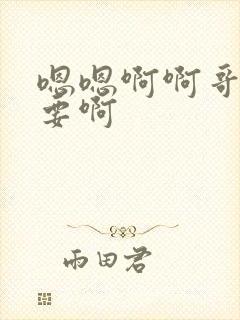 嗯嗯啊啊哥
要啊
雨田君